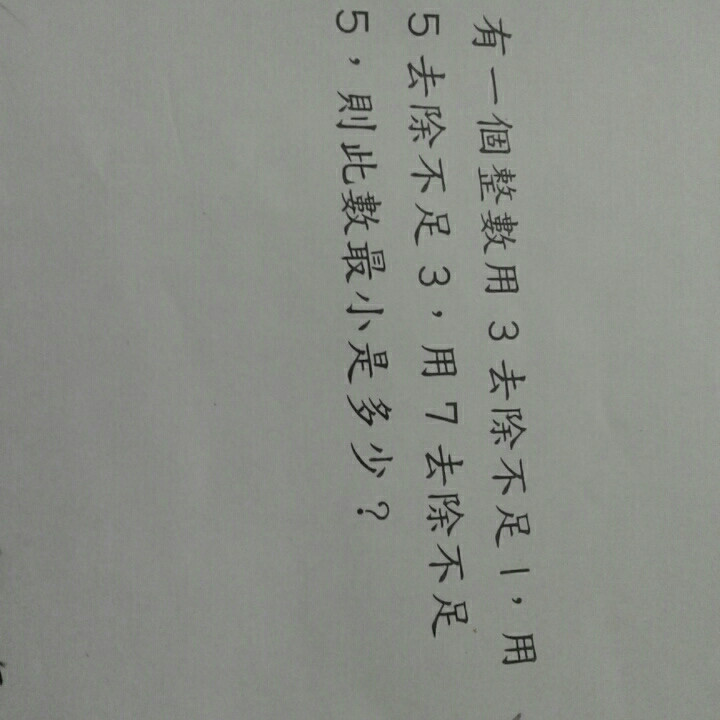 有一個整數用3去除不足1，用
5去除不足3，用7去除不足
5，則此數最小是多少？